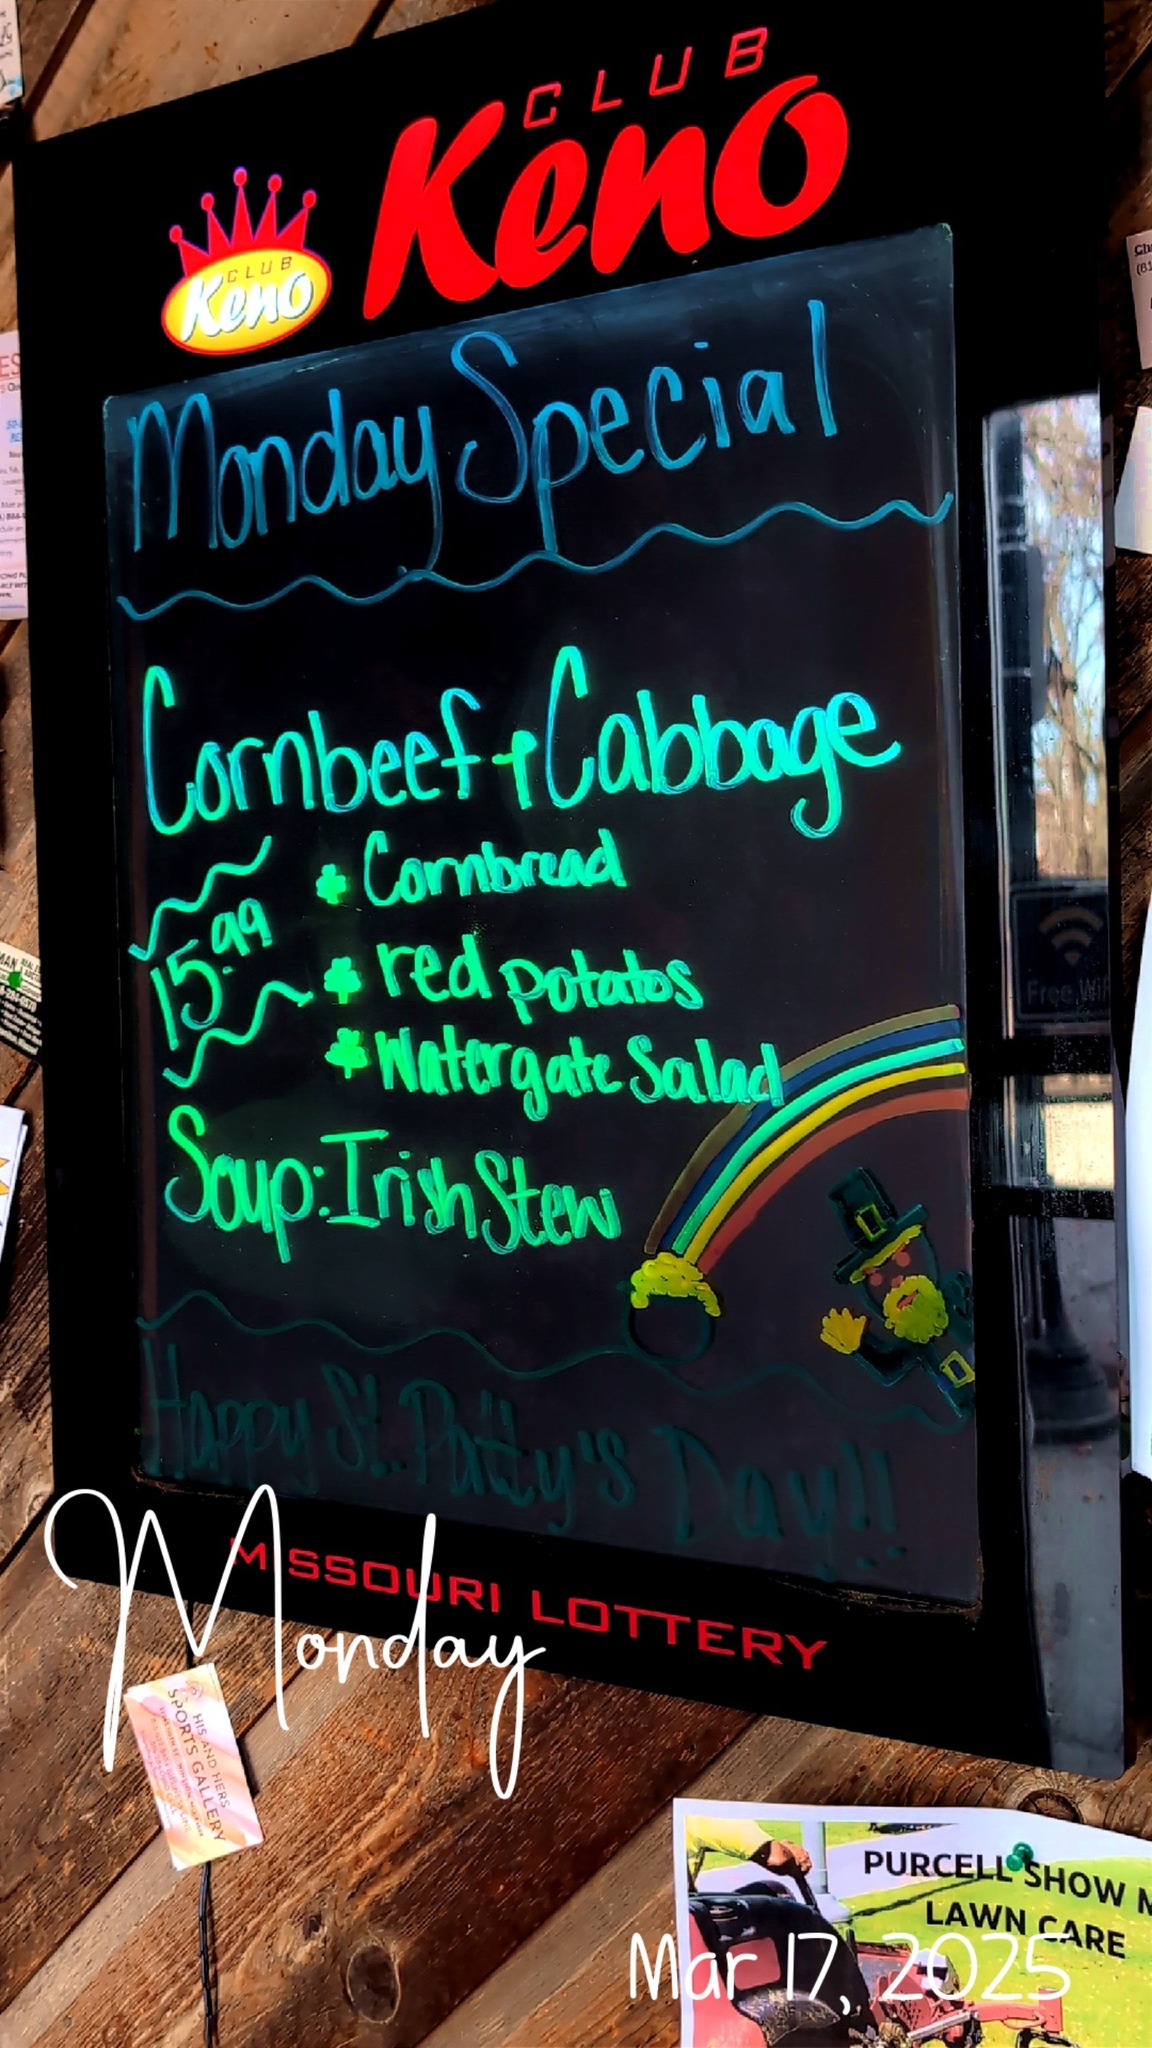 CLUB
Keno
CLUB
Keno
Monday Special
Cornbeef + Cabbage
15.99
Cornbread
red potatos
Watergate Salad
Soup: Irish Stew
Happy St. Patty's Day!!
MISSOURI LOTTERY
Monday
HIS AND HERS
SPORTS GALLERY
Free Wifi
PURCELL SHOW M
LAWN CARE
Mar 17, 2025